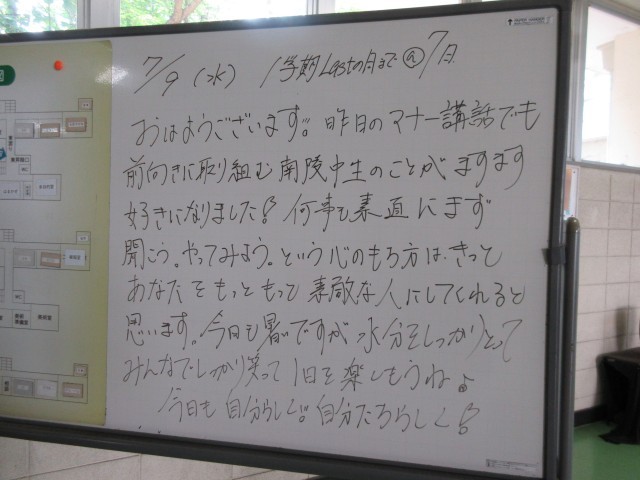 7/9 (水) 1学期Lastの日まで@7日
おはようございます!! 昨日のマナー講話でも
前向きに取り組む南陵中生のことがますます
好きになりました! 何事も素直にまず
聞こう。やってみよう。という心のもち方は、きっと
あなたをもっともっと素敵な人にしてくれると
思います。今日も暑いですが水分をしっかりとって
みんなでしっかり笑って1日を楽しもうね♪
今日も自分らしく!! 自分たちらしく!